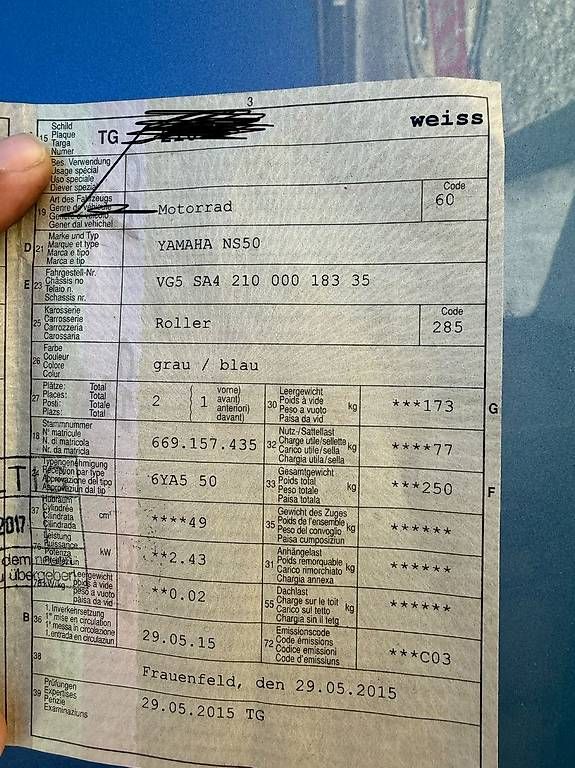 3
15 Schild
Plaque
Targa
Numer
TG
weiss
Bes. Verwendung
Usage spécial
Uso speciale
Diever spezial
19 Art des Fahrzeugs
Genre de véhicule
Gener dal vehichel
Motorrad
Code
60
D 21 Marke und Typ
Marque et type
Marca e tipo
Marca e tip
YAMAHA NS50
E 23 Fahrgestell-Nr.
Châssis no
Telaio n.
Schassis nr.
VG5 SA4 210 000 183 35
25 Karosserie
Carrosserie
Carrozzeria
Carossaria
Roller
Code
285
26 Farbe
Couleur
Colore
Colur
grau / blau
27 Plätze: Total
Places: Total
Posti: Totale
Plazs: Total
2 { 1 vorne)
avant)
anteriori)
davant)
30 Leergewicht
Poids à vide
Peso a vuoto
Paisa da vid
kg
***173
G
18 Stammnummer
N° matricule
N. di matricola
Nr. da matricla
669.157.435
32 Nutz-/Sattellast
Charge utile/sellette
Carico utile/sella
Chargia utila/sella
kg
****77
24 Typengenehmigung
Réception par type
Approvazione del tipo
Approvaziun dal tip
6YA5 50
33 Gesamtgewicht
Poids total
Peso totale
Paisa totala
kg
***250
F
T
2017
37 Hubraum
Cylindrée
Cilindrata
Cilindrada
cm³
****49
35 Gewicht des Zuges
Poids de l'ensemble
Peso del convoglio
Paisa cumposiziun
kg
******
76 Leistung
Puissance
Potenza
kW
**2.43
31 Anhängelast
Poids remorquable
Carico rimorchiato
Chargia annexa
kg
******
übergeben
78 kW/kg
Leergewicht
poids à vide
peso a vuoto
paisa da vid
**0.02
55 Dachlast
Charge sur le toit
Carico sul tetto
Chargia sin il tetg
kg
******
B 36 1. Inverkehrsetzung
1re mise en circulation
1a messa in circolazione
1. entrada en circulaziun
29.05.15
72 Emissionscode
Code émissions
Codice emissioni
Code d'emissiuns
***C03
38
Frauenfeld, den 29.05.2015
39 Prüfungen
Expertises
Perizie
Examinaziuns
29.05.2015 TG